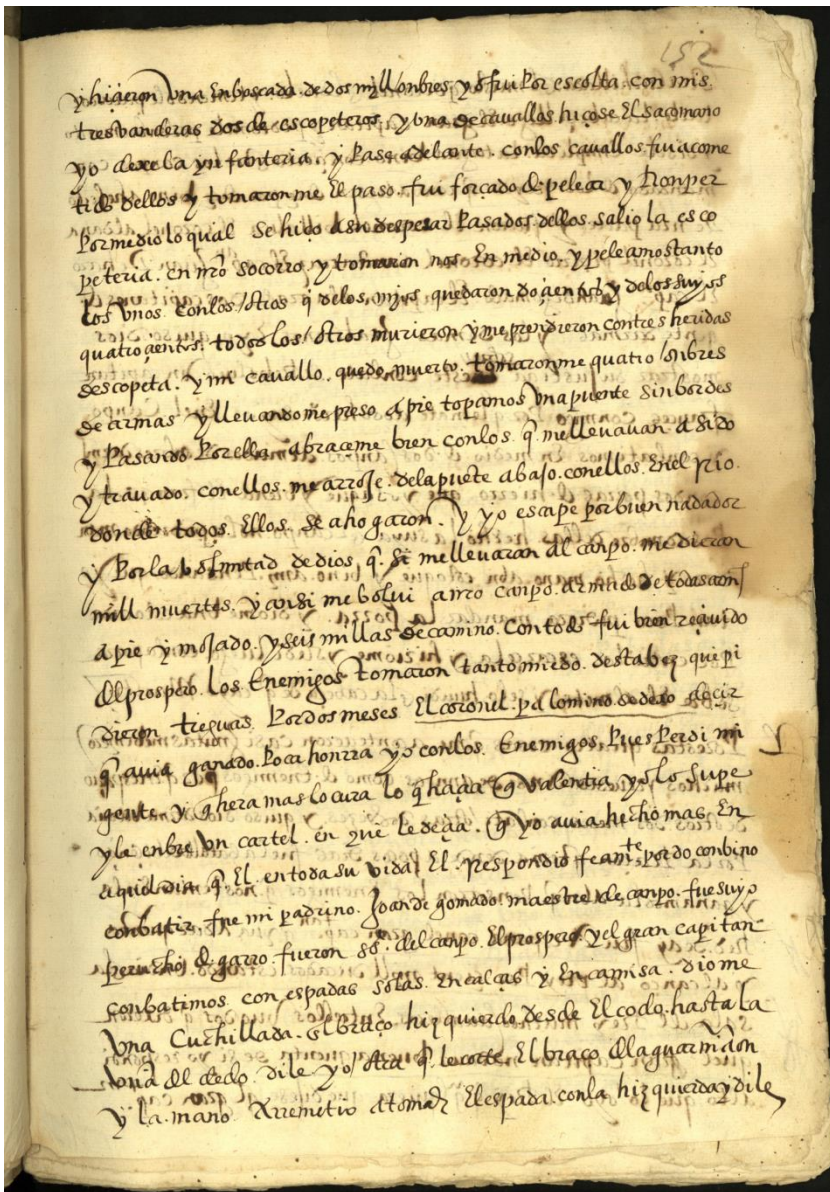 152
y hiçieron Una Enboscada de dos mill onbres y yo fui por escolta con mis
tres vanderas dos de escopeteros y una de cavallos hiçose El sacomano
yo dexe la ynfanteria y Pase adelante con los cavallos fui acome
tido dellos y tomaronme El paso fui forçado de pelear y Ronper
Por medio lo qual se hiço Pasados dellos salio la esco
peteria en nro socorro y tomaron nos En medio y peleamos tanto
Los unos con los otros q̃ de los mios quedaron doçientos y de los suyos
quatroçientos todos los otros murieron y me prendieron con tres heridas
descopeta y mi cavallo quedo muerto tomaronme quatro onbres
de armas y llevandome preso a pie topamos Una puente sin bordes
y Pasando Por ella abraçeme bien con los q̃ me llevavan asido
y travado con ellos me arroje de la puẽte abajo con ellos En el Rio
donde todos Ellos se ahogaron y yo escape por bien nadador
y Por la voluntad de dios q̃ si me llevaran al canpo me dieran
mill muertes y ansi me bolvi a nro canpo armado de todas armas
a pie y mojado y seis millas de camino con todo fui bien reçivido
del prospero los Enemigos tomaron tanto miedo desta bez que pi
dieron treguas Por dos meses El coronel palomino decir
q̃ avia ganado Poca honrra yo con los Enemigos Pues Perdi mi
gente y q̃ hera mas locura lo q̃ haçia q̃ valentia yo lo supe
y le enbie Un cartel en que le deçia q̃ yo avia hecho mas En
aquel dia q̃ El en toda su vida El Respondio por do convino
conbatir fue mi padrino Joan de gomado maestre de canpo fue suyo
perucho de garro fueron del canpo El prospero y el gran capitan
conbatimos con espadas solas En calças y En camisa diome
Una Cuchillada el braço hizquierdo desde El codo hasta la
Uña del dedo dile yo otra q̃ le corte El braço
y la mano Arremetio a tomar El espada con la hizquierda y dile